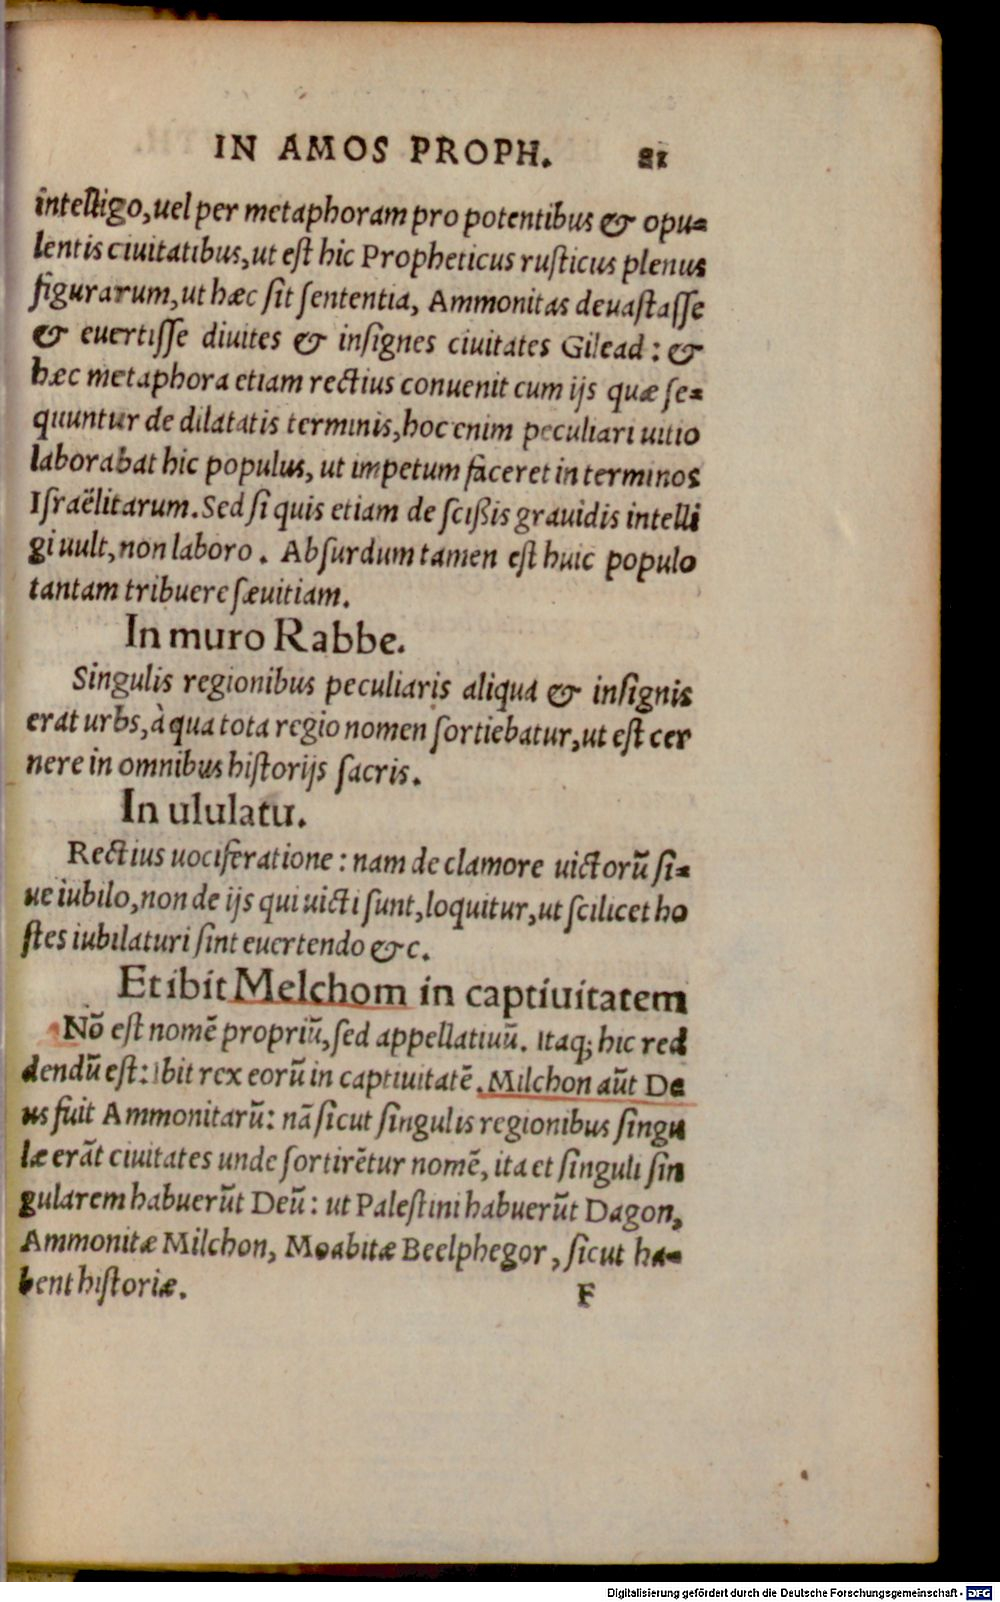 IN AMOS PROPH. 81
intelligo, uel per metaphoram pro potentibus & opu-
lentis ciuitatibus, ut est hic Propheticus rusticus plenus
figurarum, ut hæc sit sententia, Ammonitas deuastasse
& euertisse diuites & insignes ciuitates Gilead: &
hæc metaphora etiam rectius conuenit cum ijs quæ se-
quuntur de dilatatis terminis, hoc enim peculiari uitio
laborabat hic populus, ut impetum faceret in terminos
Israëlitarum. Sed si quis etiam de scißis grauidis intelli
gi uult, non laboro. Absurdum tamen est huic populo
tantam tribuere sæuitiam.
In muro Rabbe.
Singulis regionibus peculiaris aliqua & insignis
erat urbs, à qua tota regio nomen sortiebatur, ut est cer
nere in omnibus historijs sacris.
In ululatu.
Rectius uociferatione: nam de clamore uictorũ si-
ue iubilo, non de ijs qui uicti sunt, loquitur, ut scilicet ho
stes iubilaturi sint euertendo &c.
Et ibit Melchom in captiuitatem
Nõ est nomẽ propriũ, sed appellatiuũ. Itaq; hic red
dendũ est: Ibit rex eorũ in captiuitatẽ. Milchon aũt De
us fuit Ammonitarũ: nã sicut singulis regionibus singu
læ erãt ciuitates unde sortirẽtur nomẽ, ita et singuli sin
gularem habuerũt Deũ: ut Palestini habuerũt Dagon,
Ammonitæ Milchon, Moabitæ Beelphegor, sicut ha-
bent historiæ.
F
Digitalisierung gefördert durch die Deutsche Forschungsgemeinschaft - DFG